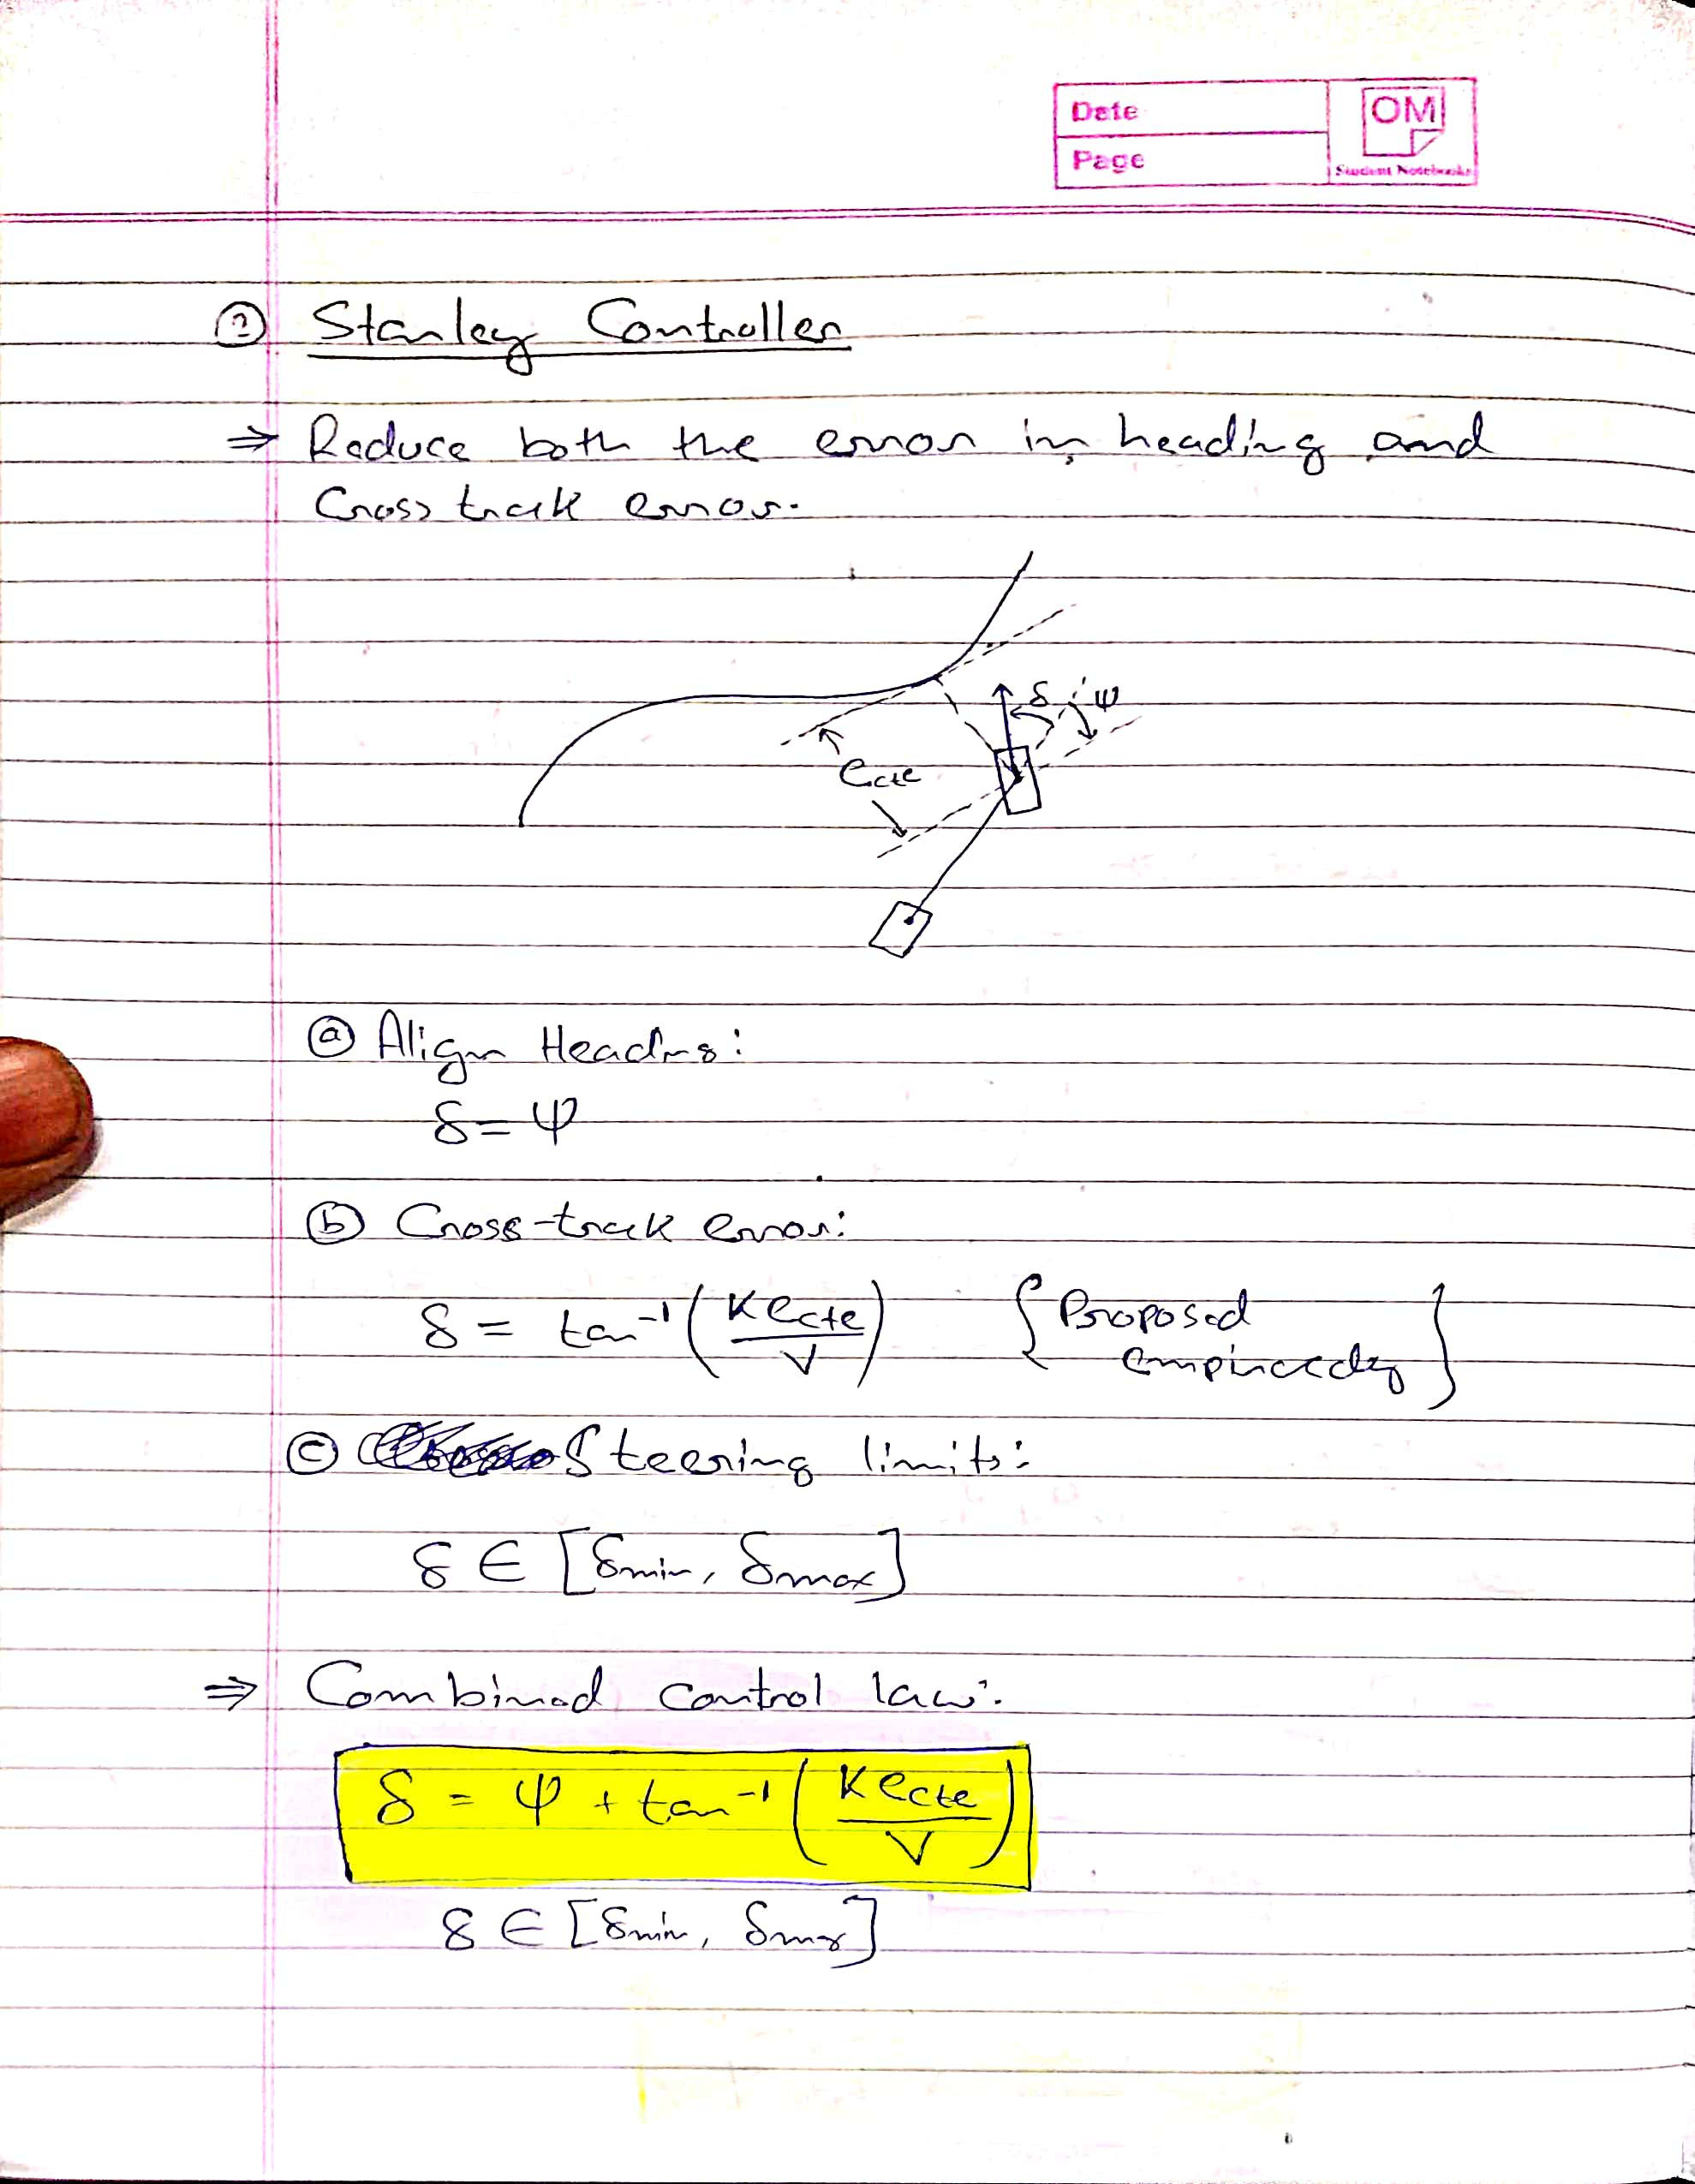 Date
Page
OM
Student Notebooks
② Stanley Controller
⇒ Reduce both the error in heading and
Cross track error.
δ ψ
e_cte
ⓐ Align Heading:
δ = ψ
ⓑ Cross-track error:
δ = tan⁻¹ (K e_cte / V) { Proposed
empirically }
ⓒ Steering limits:
δ ∈ [δmin, δmax]
⇒ Combined control law:
δ = ψ + tan⁻¹ (K e_cte / V)
δ ∈ [δmin, δmax]